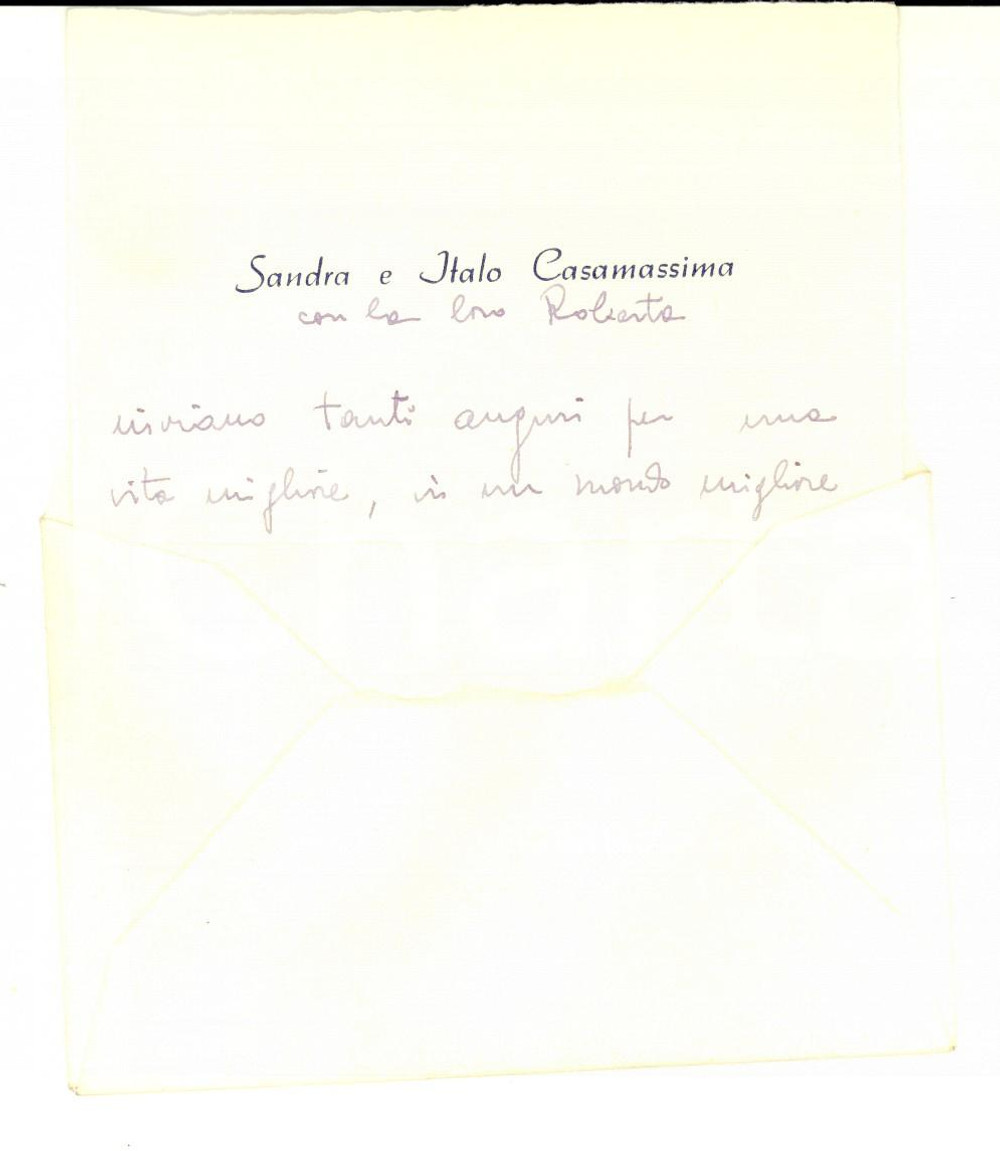 Sandra e Italo Casamassima
con la loro Roberta
inviano tanti auguri per una
vita migliore, in un mondo migliore